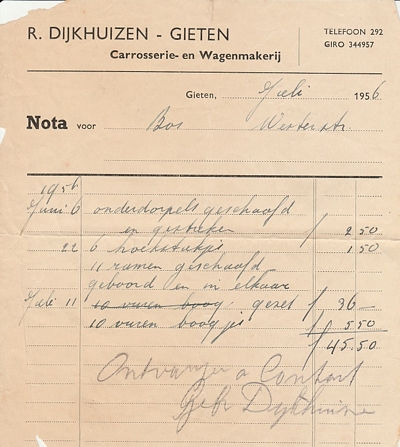 R. DIJKHUIZEN - GIETEN
Carrosserie- en Wagenmakerij
TELEFOON 292
GIRO 344957
Gieten, Juli 1956
Nota voor Bos Westerstr.
1956
Juni 6 onderdorpels geschaafd
en gestreken f 2.50
22 6 hoekstukjes 1.50
11 ramen geschaafd
geboord en in elkaar
Juli 11 10 vuren boog. gezet f 36 —
10 vuren boogjes f 5.50
f 45.50
Ontvangen a Contant
Gebr Dijkhuizen